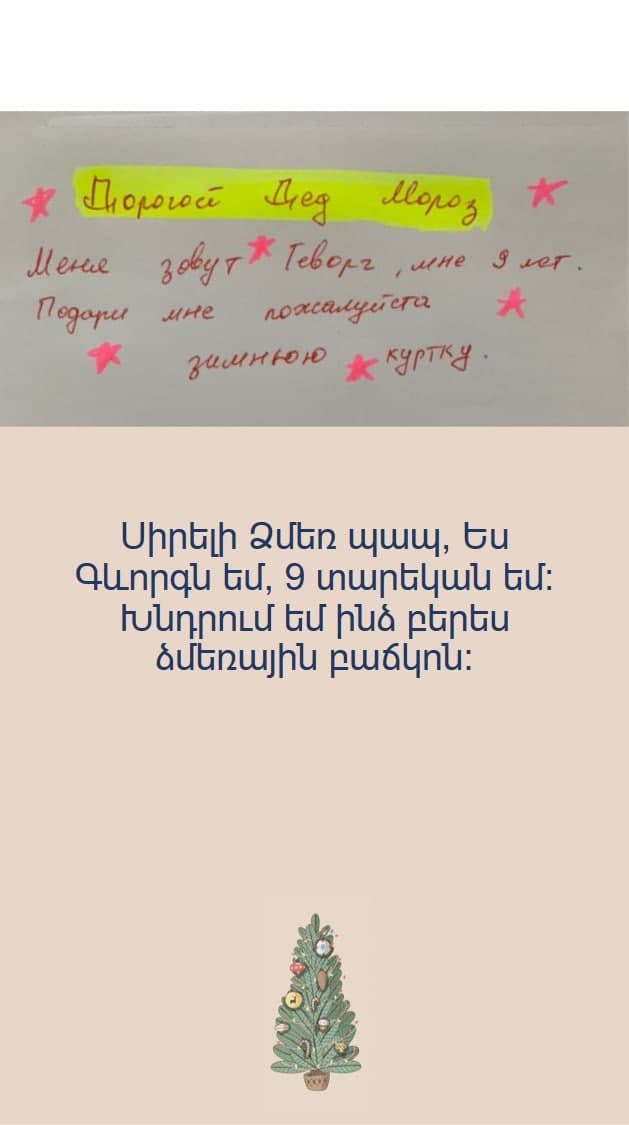 Дорогой Дед Мороз
Меня зовут Геворг, мне 9 лет.
Подари мне пожалуйста
зимнюю куртку.
Սիրելի Ձմեռ պապ, Ես
Գևորգն եմ, 9 տարեկան եմ:
Խնդրում եմ ինձ բերես
ձմեռային բաճկոն: